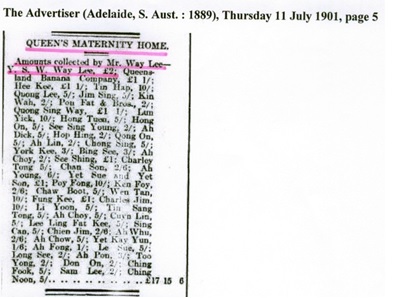 The Advertiser (Adelaide, S. Aust. : 1889), Thursday 11 July 1901, page 5
QUEEN'S MATERNITY HOME.
Amounts collected by Mr. Way Lee—
Y. S. W. Way Lee, £2; Queens-
land Banana Company, £1 1/;
Hee Kee, £1 1/; Tin Hap, 10/;
Quong Lee, 5/; Jim Sing, 5/; Kin
Wah, 2/; Pon Fat & Bros., 2/;
Quong Sing Way, £1 1/; Lun
Yick, 10/; Hong Tuen, 5/; Hong
On, 5/; See Sing Young, 2/; Ah
Dick, 5/; Hop Hing, 2/; Qong On,
5/; Ah Lin, 2/; Chong Sing, 5/;
York Kee, 3/; Bing See, 3/; Ah
Choy, 2/; See Shing, £1; Charley
Tong 5/; Chan Son, 2/6; Ah
Young, 6/; Yet Sue and Yet
Son, £1; Poy Fong, 10/; Ken Foy,
2/6; Chaw Boot, 5/; Wen Tan,
10/; Fung Kee, £1; Charles Jim,
10/; Li Yoon, 5/; Tin Sang
Tong, 5/; Ah Choy, 5/; Lin,
5/; Lee Ling Fat Kee, 5/; Sing
Can, 5/; Chien Jim, 2/6; Ah Whu,
2/6; Ah Chow, 5/; Yet Kay Yun,
1/6; Ah Fong, 1/; Le Sue, 5/;
Long See, 2/; Ah Pon, 3/; Too
Yong, 2/; Don On, 2/; Ching
Fook, 5/; Sam Lee, 2/; Ching
Noon, 5/.. .. .. .. .. .. .. ..£17 15 6